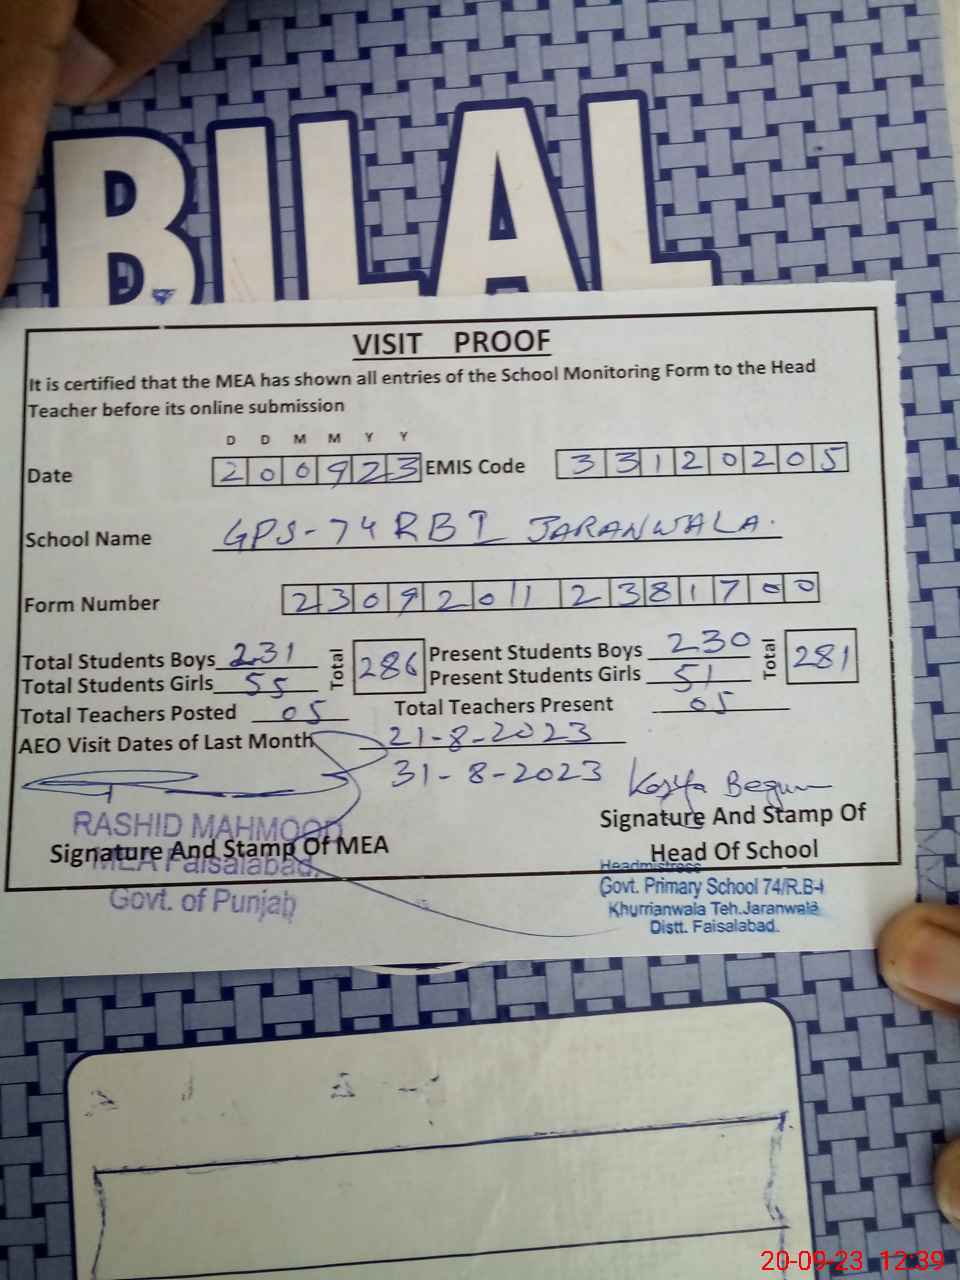 BILAL
VISIT PROOF
It is certified that the MEA has shown all entries of the School Monitoring Form to the Head
Teacher before its online submission
D D M M Y Y
Date 200923 EMIS Code 33120205
School Name GPS-74 RB I JARANWALA.
Form Number 230920112381700
Total Students Boys 231 Total 286 Present Students Boys 230 Total 281
Total Students Girls 55 Present Students Girls 51
Total Teachers Posted 05 Total Teachers Present 05
AEO Visit Dates of Last Month 21-8-2023
31-8-2023
Begum
RASHID MAHMOOD
Signature And Stamp Of MEA
MEA Faisalabad.
Govt. of Punjab
Signature And Stamp Of
Head Of School
Headmistress
Govt. Primary School 74/R.B-I
Khurrianwala Teh.Jaranwala
Distt. Faisalabad.
20-09-23 12:39